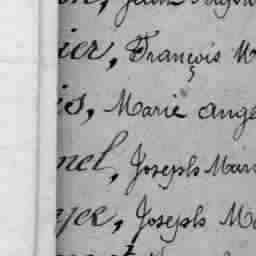 ier, François M
is, Marie ange
nel, Joseph Mari
yer, Joseph Ma